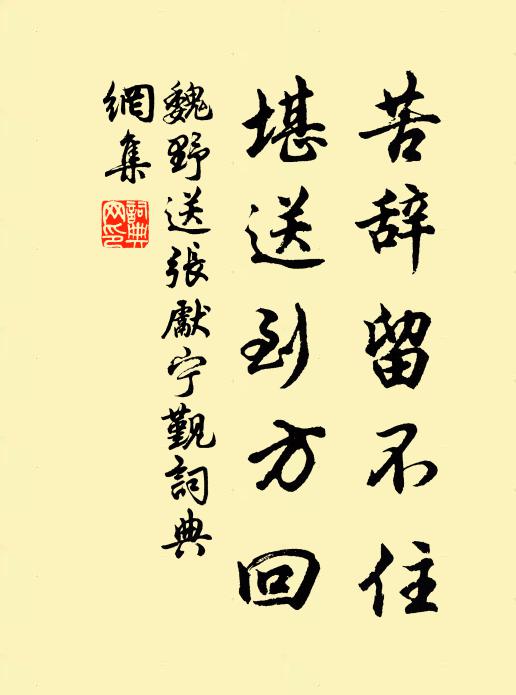 苦辞留不住
堪送到方回
魏野送張獻宁觐詞典
網集
詞典
網印